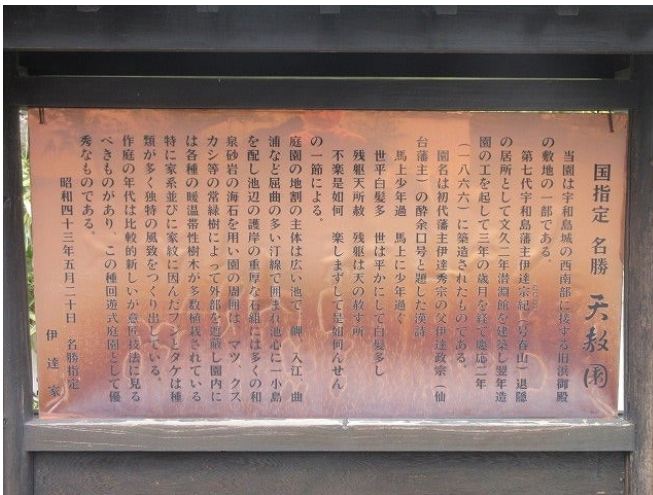 国指定 名勝 天赦園
当園は宇和島城の西南部に接する旧浜御殿
の敷地の一部である。
第七代宇和島藩主伊達宗紀(号春山)退隠
の居所として文久二年潜淵館を建築し翌年造
園の工を起して三年の歳月を経て慶応二年
(一八六六)に築造されたものである。
園名は初代藩主伊達秀宗の父伊達政宗(仙
台藩主)の酔余口号と題した漢詩
馬上少年過 馬上に少年過ぐ
世平白髪多 世は平かにして白髪多し
残躯天所赦 残躯は天の赦す所
不楽是如何 楽しまずして是如何んせん
の一節による。
庭園の地割の主体は広い池で、岬、入江、曲
浦など屈曲の多い汀線で囲まれ池心に一小島
を配し池辺の護岸の重厚な石組には多くの和
泉砂岩の海石を用い園の周囲は、マツ、クス、
カシ等の常緑樹によって外部を遮蔽し園内に
は各種の暖温帯性樹木が多数植栽されている
特に家系並びに家紋に因んだフジとタケは種
類が多く独特の風致をつくり出している。
作庭の年代は比較的新しいが意匠技法に見る
べきものがあり、この種回遊式庭園として優
秀なものである。
昭和四十三年五月二十日 名勝指定
伊達家